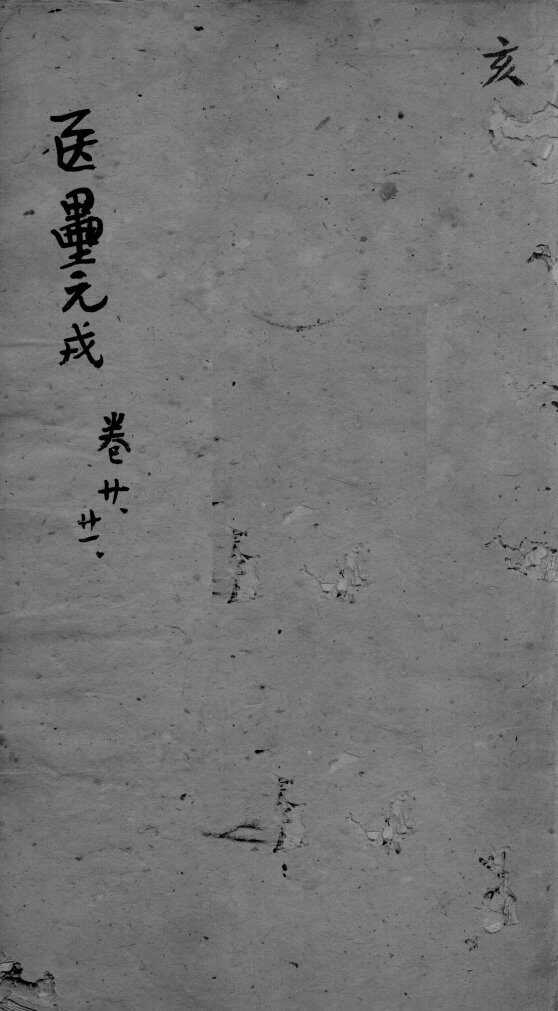 亥
医壘元戎
卷廿、
廿一。